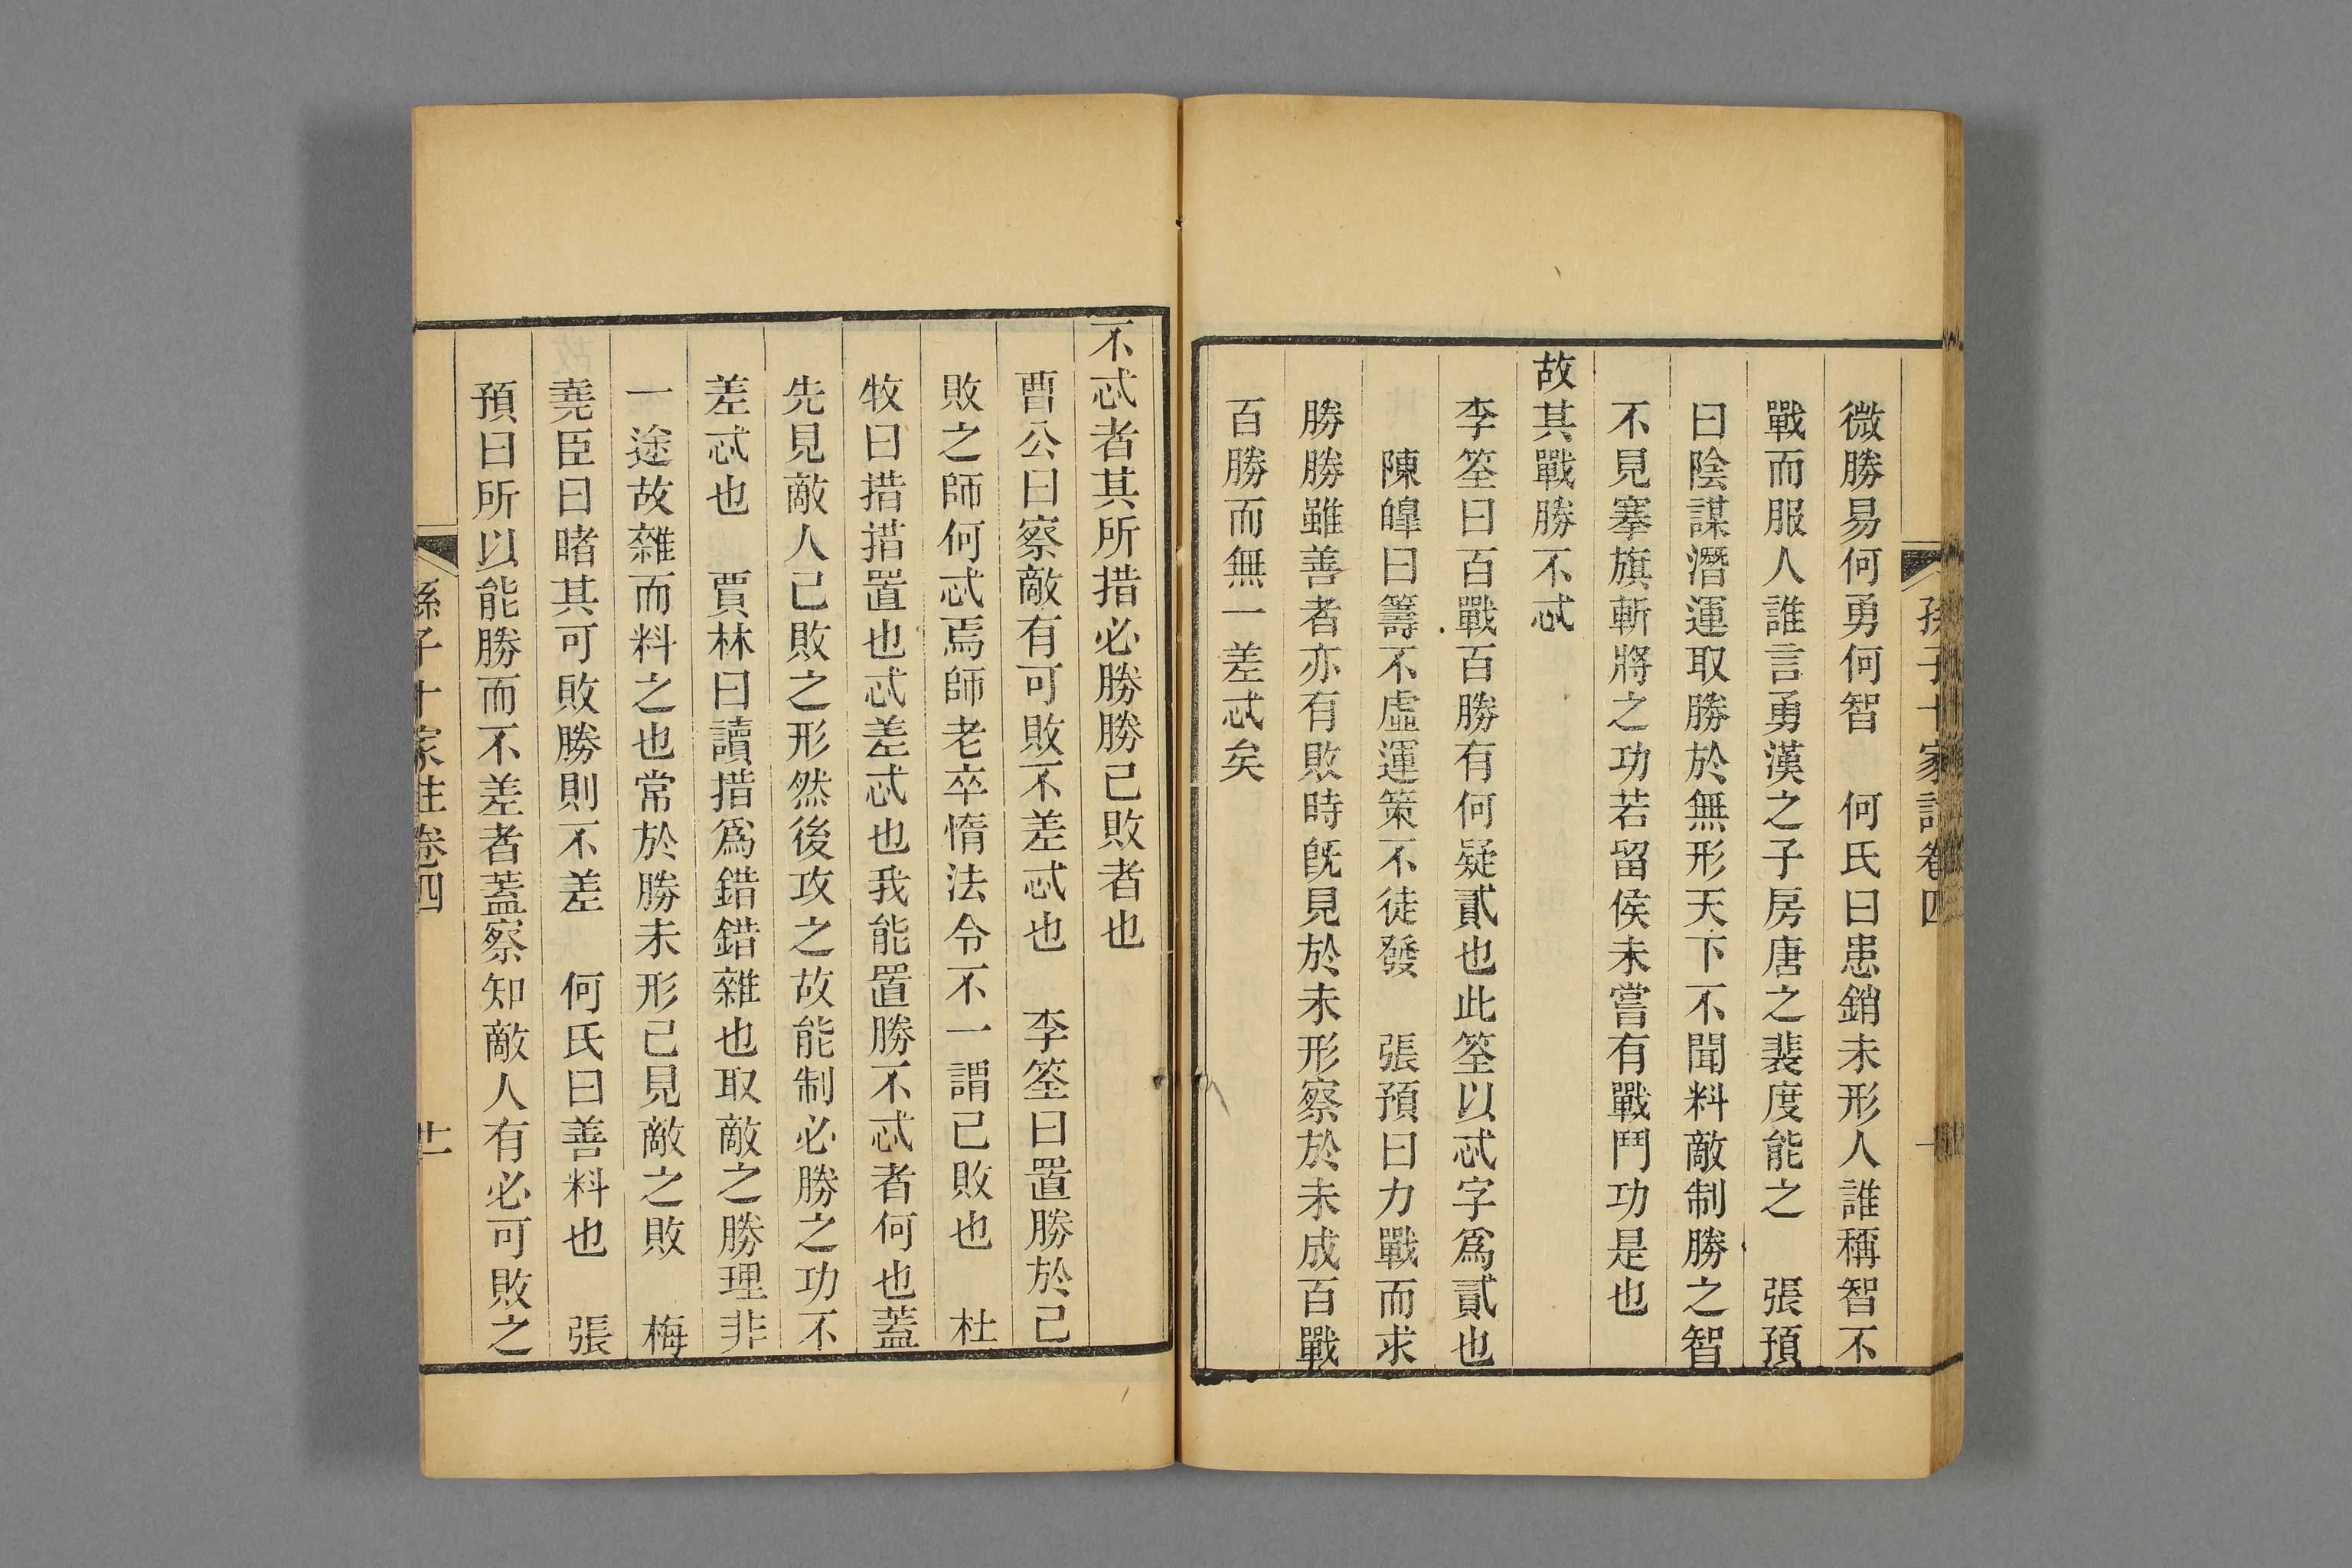 微勝易何勇何智　何氏曰患銷未形人誰稱智不
戰而服人誰言勇漢之子房唐之裴度能之　張預
曰陰謀潛運取勝於無形天下不聞料敵制勝之智
不見搴旗斬將之功若留侯未嘗有戰鬥功是也
故其戰勝不忒
李筌曰百戰百勝有何疑貳也此筌以忒字爲貳也
陳皥曰籌不虛運策不徒發　張預曰力戰而求
勝勝雖善者亦有敗時旣見於未形察於未成百戰
百勝而無一差忒矣
不忒者其所措必勝勝已敗者也
曹公曰察敵有可敗不差忒也　李筌曰置勝於已
敗之師何忒焉師老卒惰法令不一謂已敗也　杜
牧曰措措置也忒差忒也我能置勝不忒者何也蓋
先見敵人已敗之形然後攻之故能制必勝之功不
差忒也　賈林曰讀措爲錯錯雜也取敵之勝理非
一途故雜而料之也常於勝未形已見敵之敗　梅
堯臣曰睹其可敗勝則不差　何氏曰善料也　張
預曰所以能勝而不差者蓋察知敵人有必可敗之
孫子十家註卷四